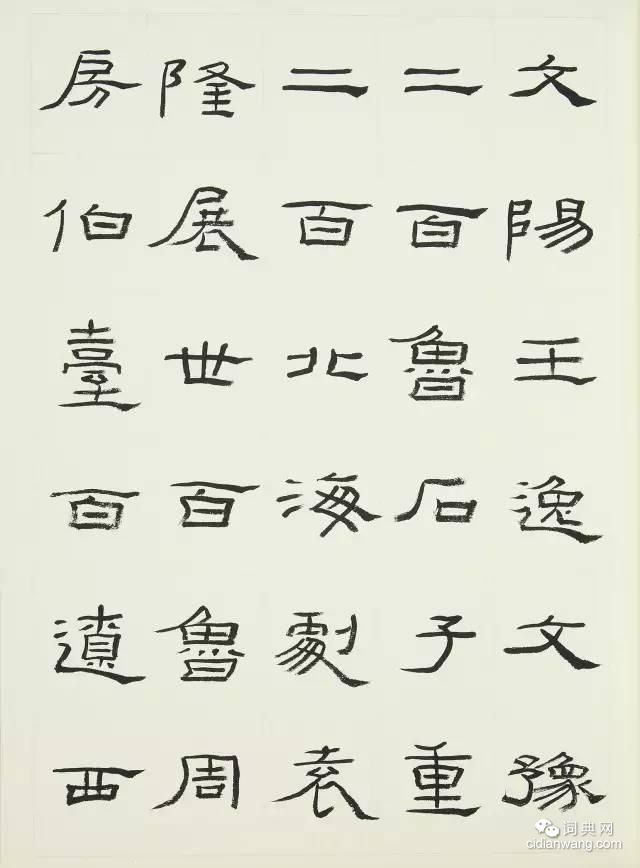 文陽王逸文豫
二百魯石子重
二百北海劇袁
隆展世百魯周
房伯臺百遺西
词典网
cidianwang.com